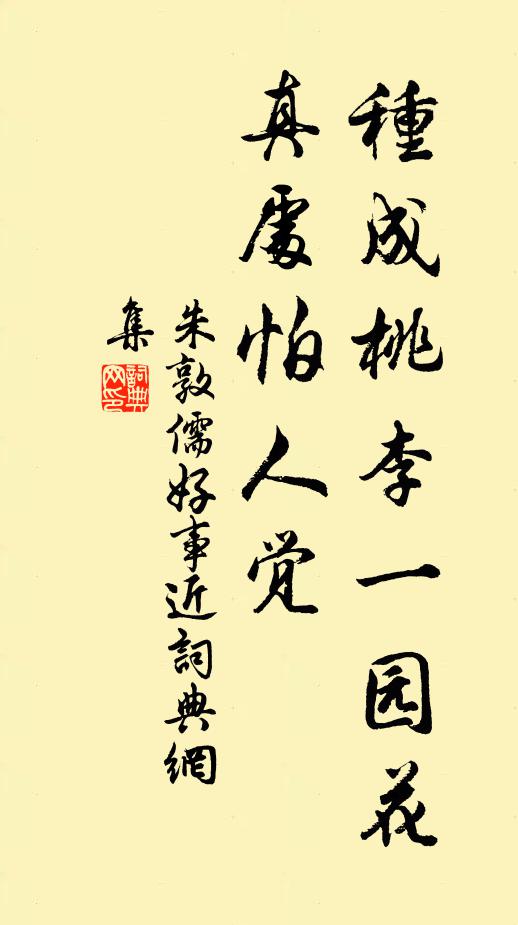 種成桃李一园花
真處怕人觉
朱敦儒好事近詞典網
集
詞典
网印